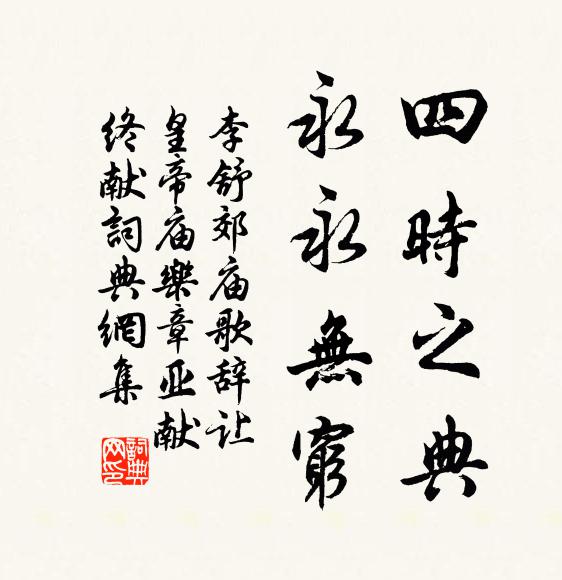 四時之典
永永無窮
李舒郊庙歌辞让
皇帝庙樂章亚献
终献詞典網集
詞典网印